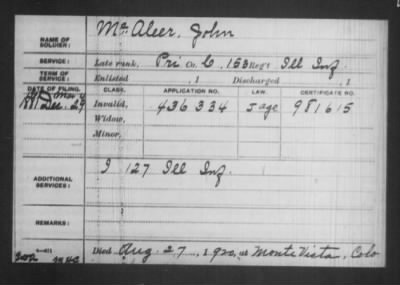 NAME OF SOLDIER: McAleer, John
SERVICE: Late rank, Pri Co. C, 153 Reg't Ill Inf.
TERM OF SERVICE: Enlisted , 1 Discharged , 1
DATE OF FILING. CLASS. APPLICATION NO. LAW. CERTIFICATE NO.
1881 Dec. 29 Invalid, 436334 J age 981615
Widow,
Minor,
ADDITIONAL SERVICES: I 127 Ill Inf.
REMARKS:
Died Aug. 27, 1920, at Monte Vista, Colo